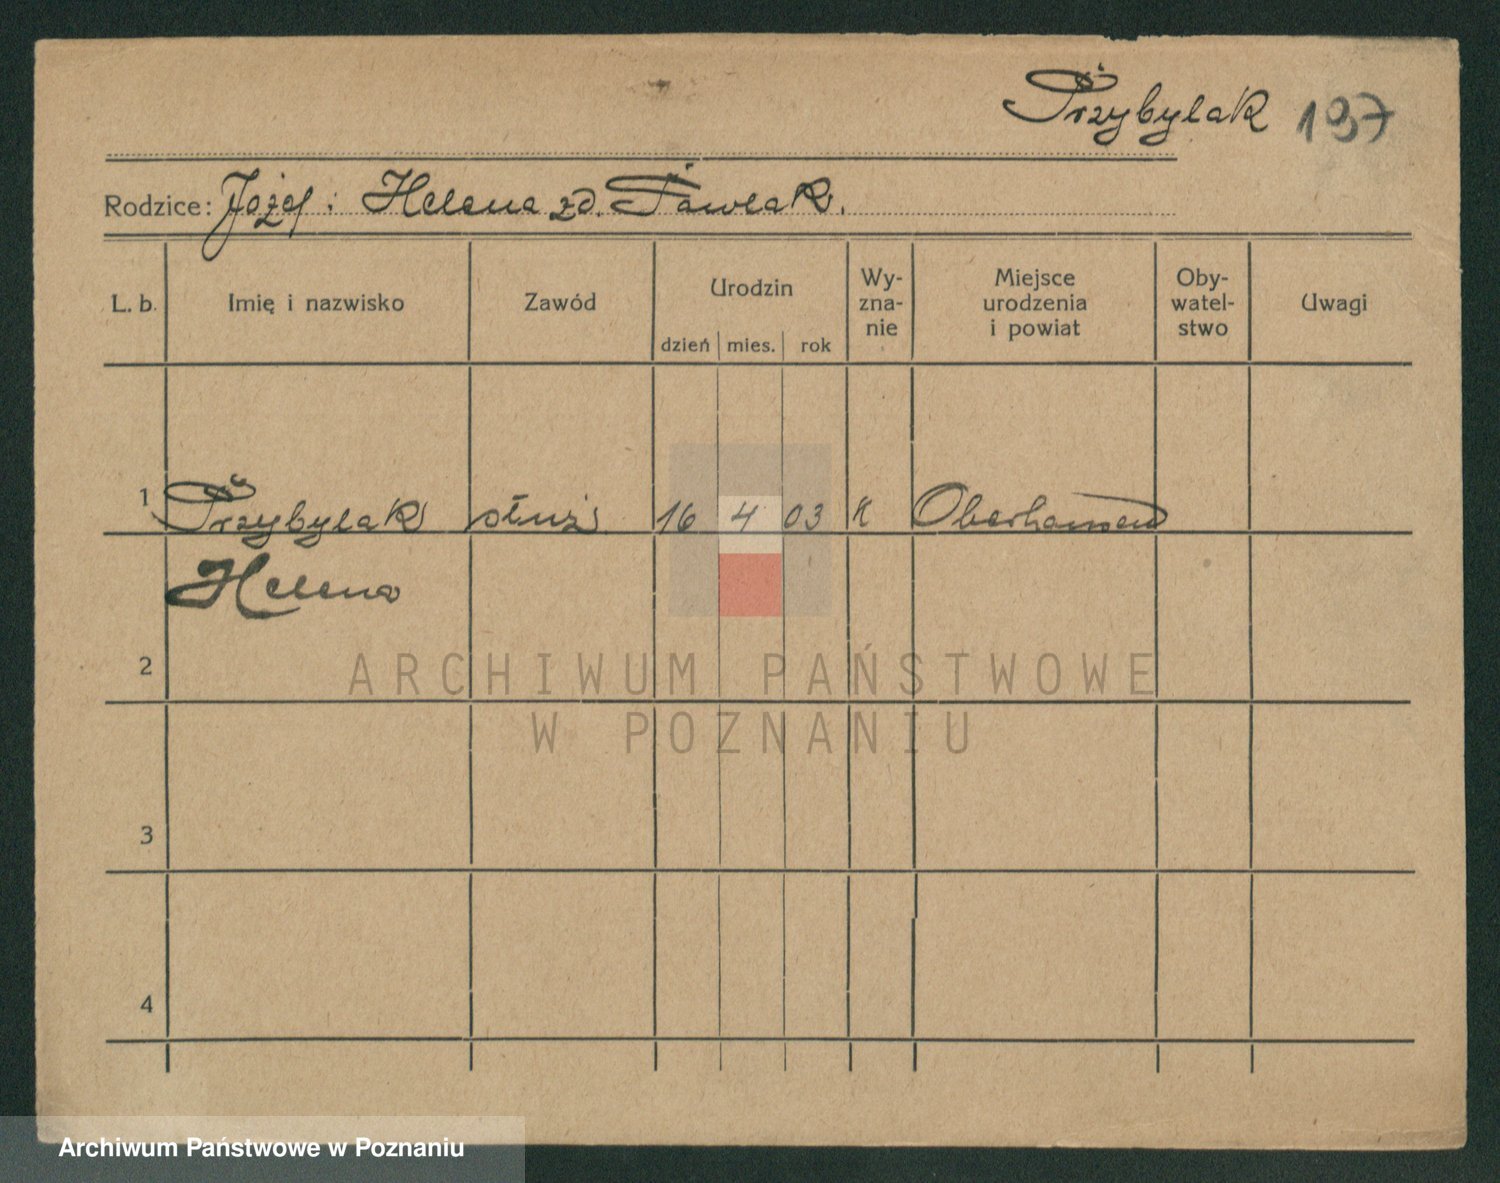 Przybylak 197
Rodzice: Józef i Helena zd. Pawlak.
L. b. Imię i nazwisko Zawód Urodzin Wy-zna-nie Miejsce urodzenia i powiat Oby-watel-stwo Uwagi
dzień mies. rok
1 Przybylak służ. 16 4 03 k Oberhausen
Helena
2
ARCHIWUM PAŃSTWOWE
W POZNANIU
3
4
Archiwum Państwowe w Poznaniu